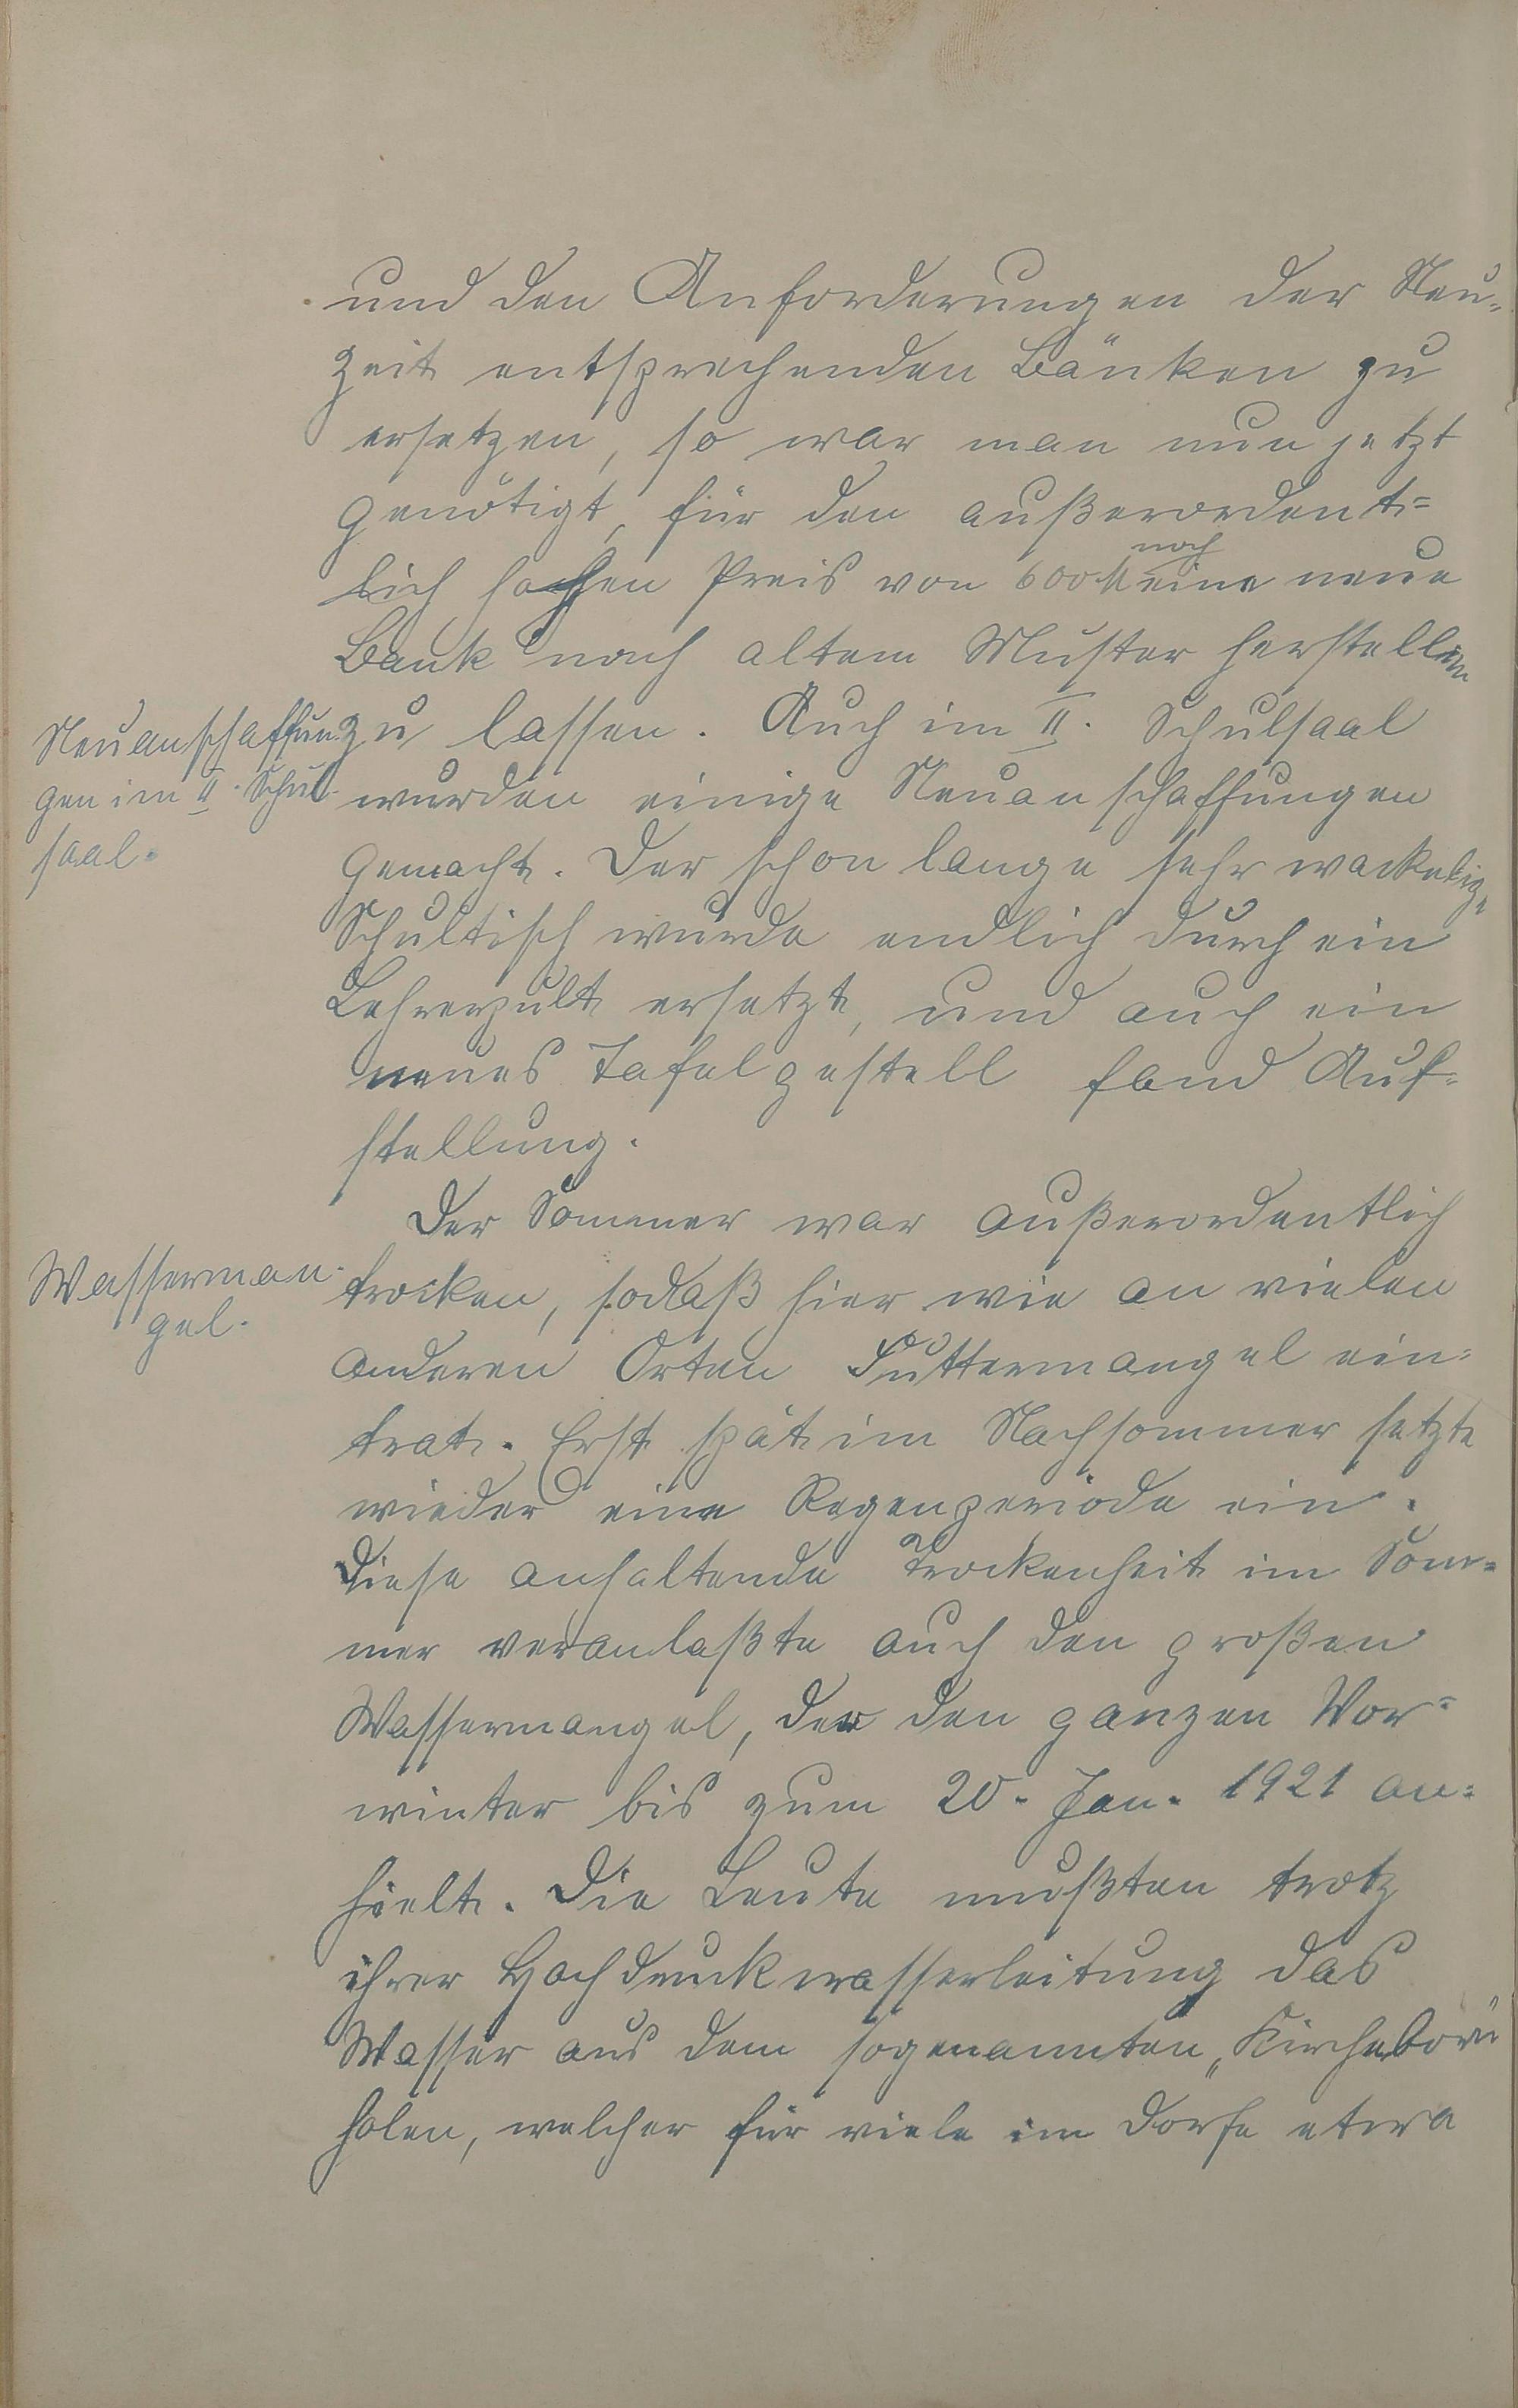 und den Anforderungen der Neu-
zeit entsprechenden Bänken zu
ersetzen, so war man nun jetzt
genötigt, für den außerordent=
noch
lich hohen Preis von 600 M eine neue
Bank nach altem Muster herstellen
Neuanschaffun zu lassen. Auch im II. Schulsaal
gen im II. Schul- wurden einige Neuanschaffungen
saal. gemacht. Der schon lange sehr wackelige
Schultisch wurde endlich durch ein
Lehrerpult ersetzt, und auch ein
neues Tafelgestell fand Auf=
stellung.
Der Sommer war außerordentlich
Wasserman- trocken, sodaß hier wie an vielen
gel. anderen Orten Futtermangel ein=
trat. Erst spät im Nachsommer setzte
wieder eine Regenperiode ein.
Diese anhaltende Trockenheit im Som=
mer veranlaßte auch den großen
Wassermangel, der den ganzen Vor=
winter bis zum 20. Jan. 1921 an=
hielt. Die Leute mußten trotz
ihrer Hochdruckwasserleitung das
Wasser aus dem sogenannten
holen, welcher für viele im Dorfe etwa